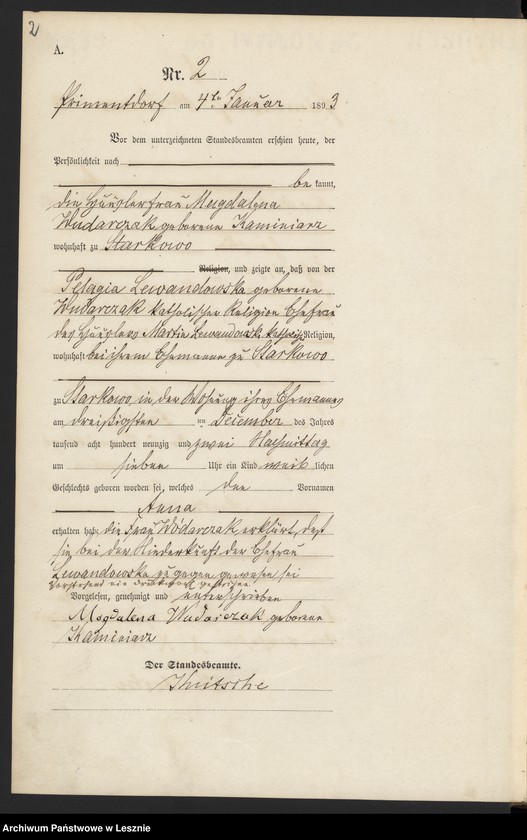 2
A.
Nr. 2
Primentdorf am 4ten Januar 1893
Vor dem unterzeichneten Standesbeamten erschien heute, der
Persönlichkeit nach
be kannt,
die Häuslerfrau Magdalena
Wudarczak geborene Kaminiarz
wohnhaft zu Starkowo
Religion, und zeigte an, daß von der
Pelagia Lewandowska geborene
Wudarczak katholischer Religion Ehefrau
des Häuslers Martin Lewandowski kathol. Religion,
wohnhaft bei ihrem Ehemanne zu Starkowo
zu Starkowo in der Wohnung ihres Ehemannes
am dreißigsten ten December des Jahres
tausend acht hundert neunzig und zwei Nachmittag
um sieben Uhr ein Kind weib lichen
Geschlechts geboren worden sei, welches den Vornamen
Anna
erhalten habe die Frau Wudarczak erklärt, daß
sie bei der Niederkunft der Ehefrau
Lewandowska zugegen gewesen sei
Vorstehend ein Druckwort gestrichen
Vorgelesen, genehmigt und unterschrieben
Magdalena Wudarczak geborene
Kaminiarz
Der Standesbeamte.
Archiwum Państwowe w Lesznie